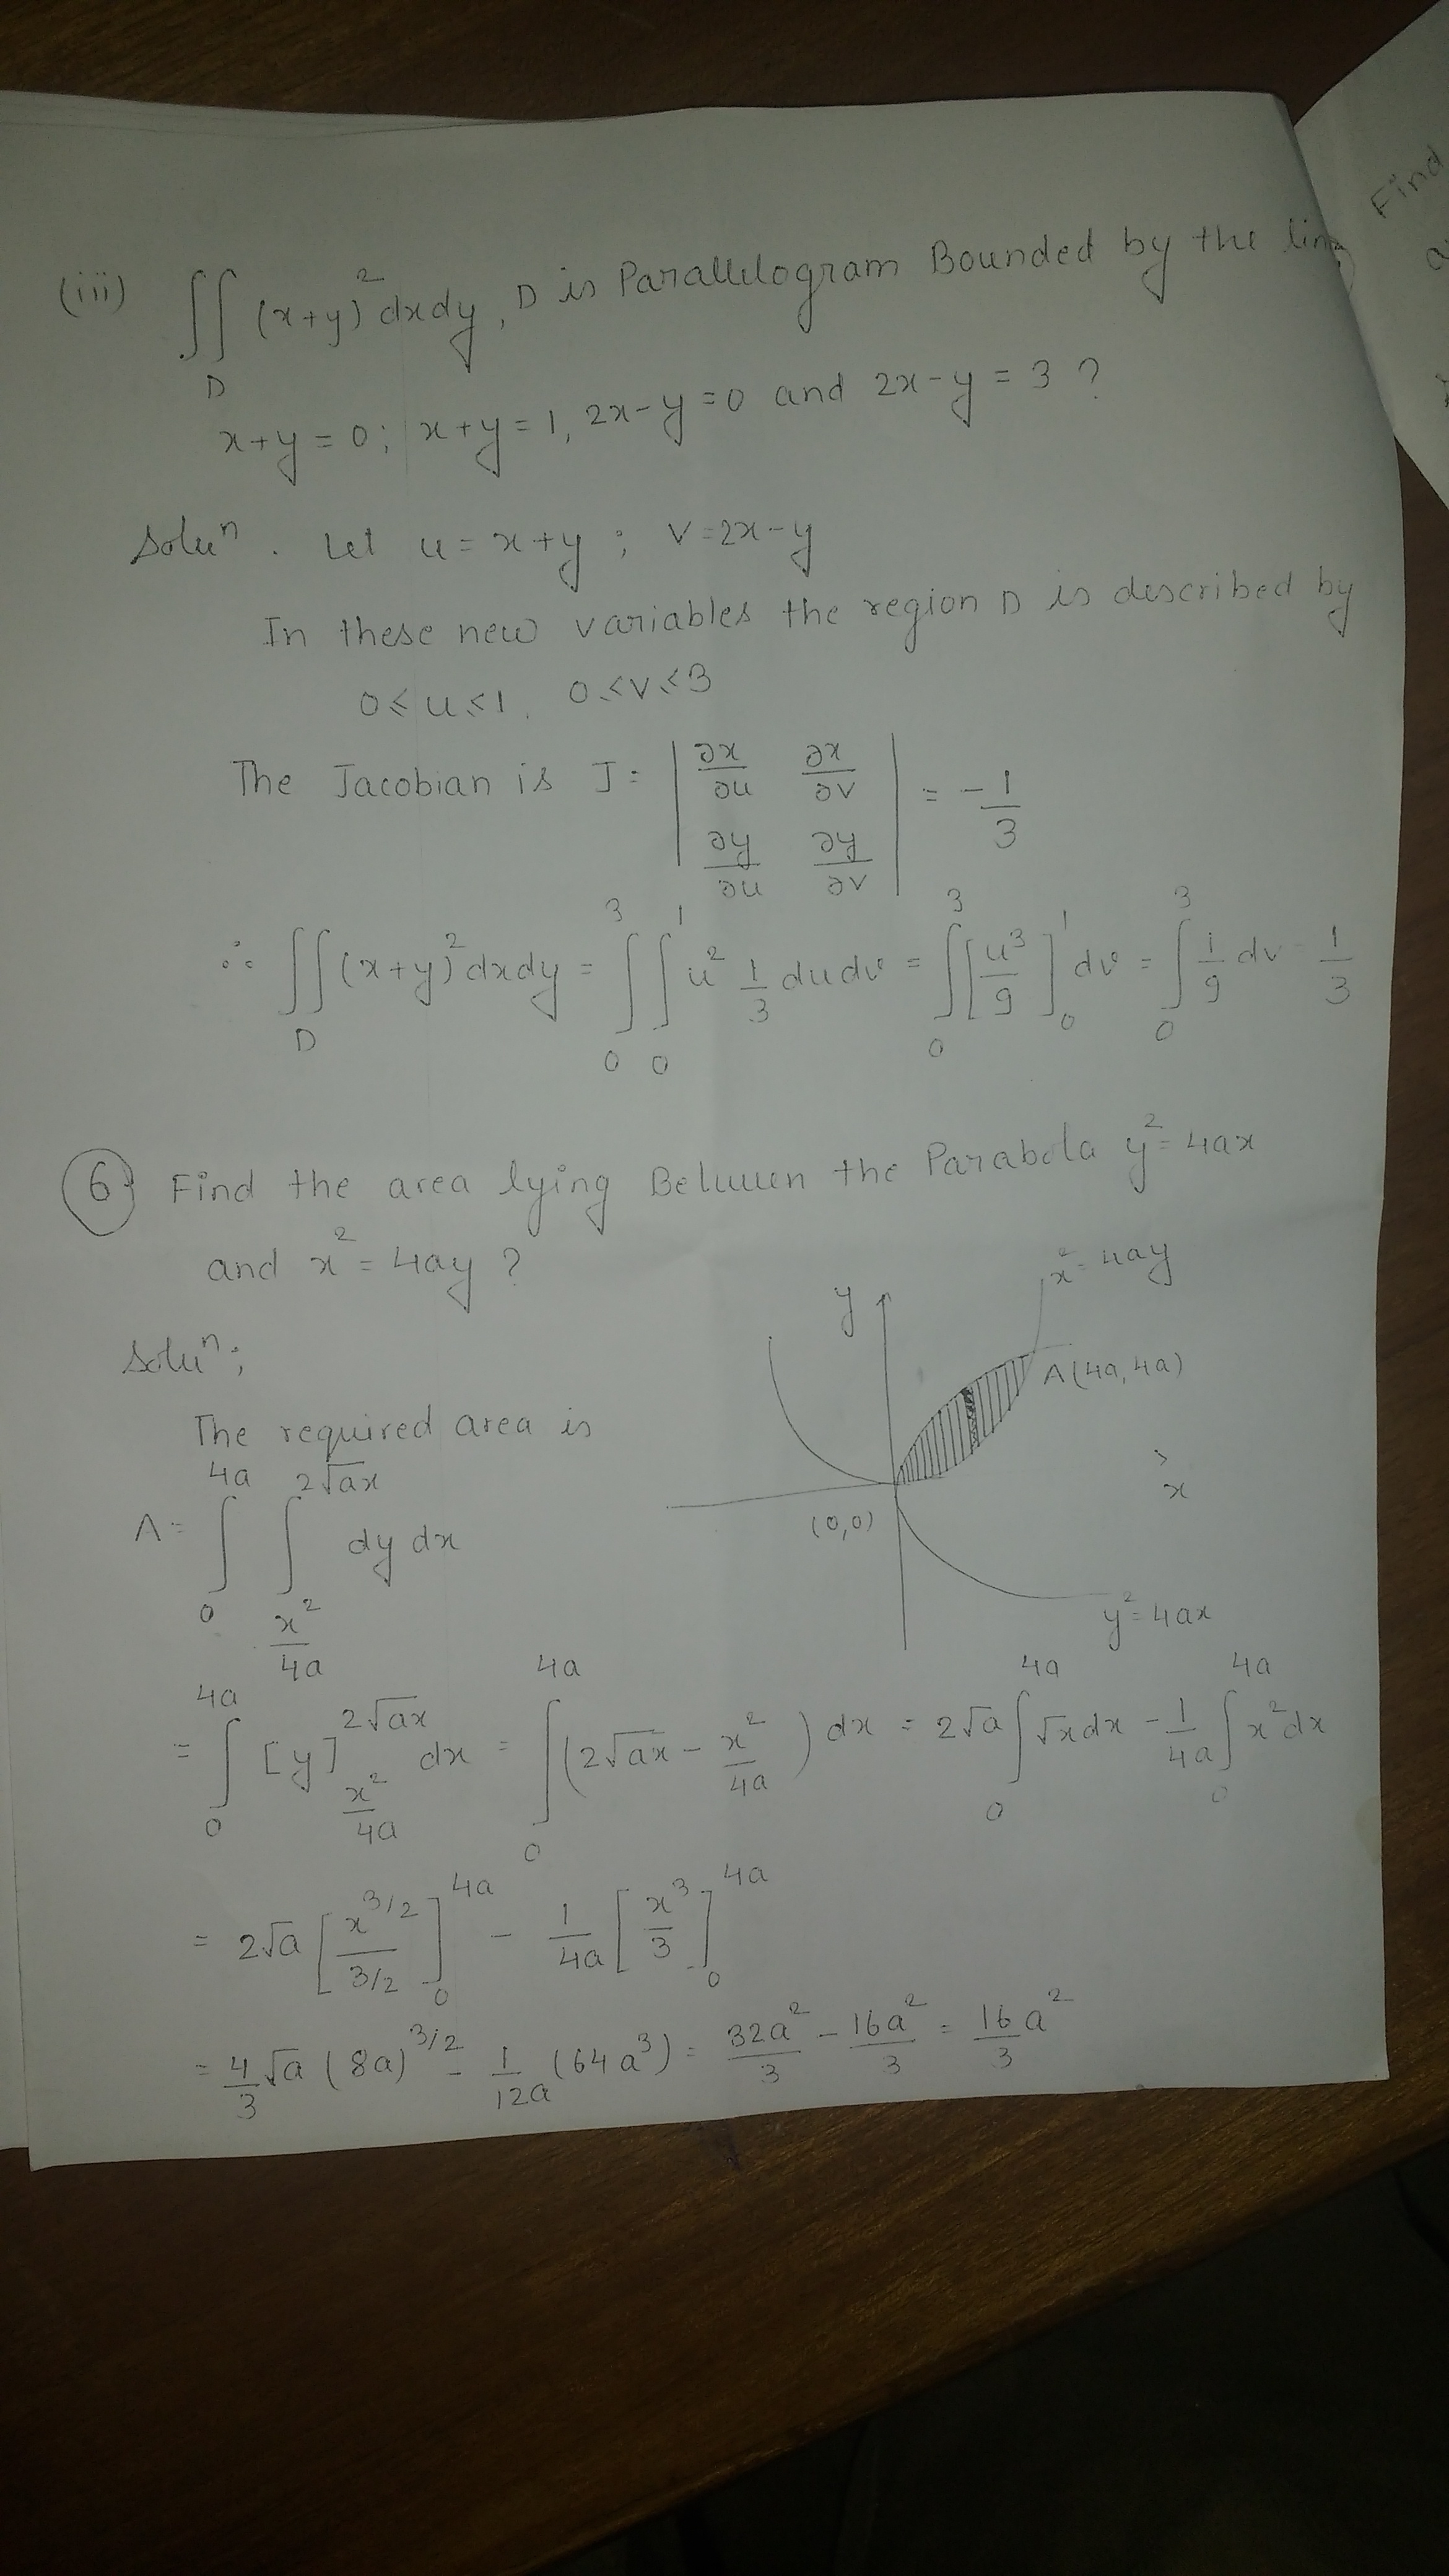 (iii) ∬_D (x+y)² dxdy, D is Parallelogram Bounded by the lin
x+y=0; x+y=1, 2x-y=0 and 2x-y=3 ?
Soluⁿ. Let u=x+y; v=2x-y
In these new variables the region D is described by
0≤u≤1, 0≤v≤3
The Jacobian is J= | ∂x/∂u ∂x/∂v ; ∂y/∂u ∂y/∂v | = -1/3
∴ ∬_D (x+y)² dxdy = ∫_0^3 ∫_0^1 u² 1/3 du dv = ∫_0^3 [u³/9]_0^1 dv = ∫_0^3 1/9 dv = 1/3
6) Find the area lying Between the Parabola y²=4ax
and x²=4ay ?
x²=4ay
y
A(4a,4a)
x
(0,0)
y²=4ax
Soluⁿ;
The required area is
A = ∫_0^{4a} ∫_{x²/4a}^{2√ax} dy dx
= ∫_0^{4a} [y]_{x²/4a}^{2√ax} dx = ∫_0^{4a} (2√ax - x²/4a) dx = 2√a ∫_0^{4a} √x dx - 1/4a ∫_0^{4a} x² dx
= 2√a [x^{3/2} / 3/2]_0^{4a} - 1/4a [x³/3]_0^{4a}
= 4/3 √a (8a)^{3/2} - 1/12a (64a³) = 32a²/3 - 16a²/3 = 16/3 a²
Find